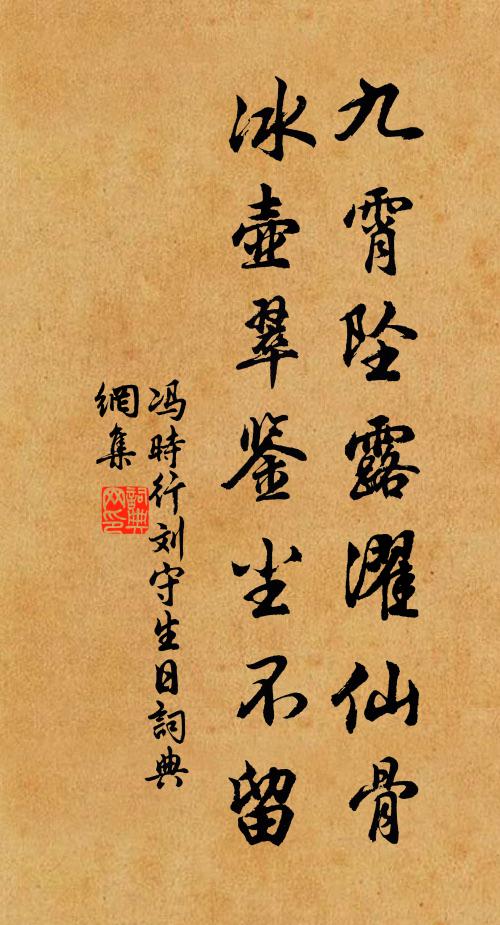 九霄坠露濯仙骨
冰壶翠鉴尘不留
冯時行刘守生日詞典
網集
詞典
网印